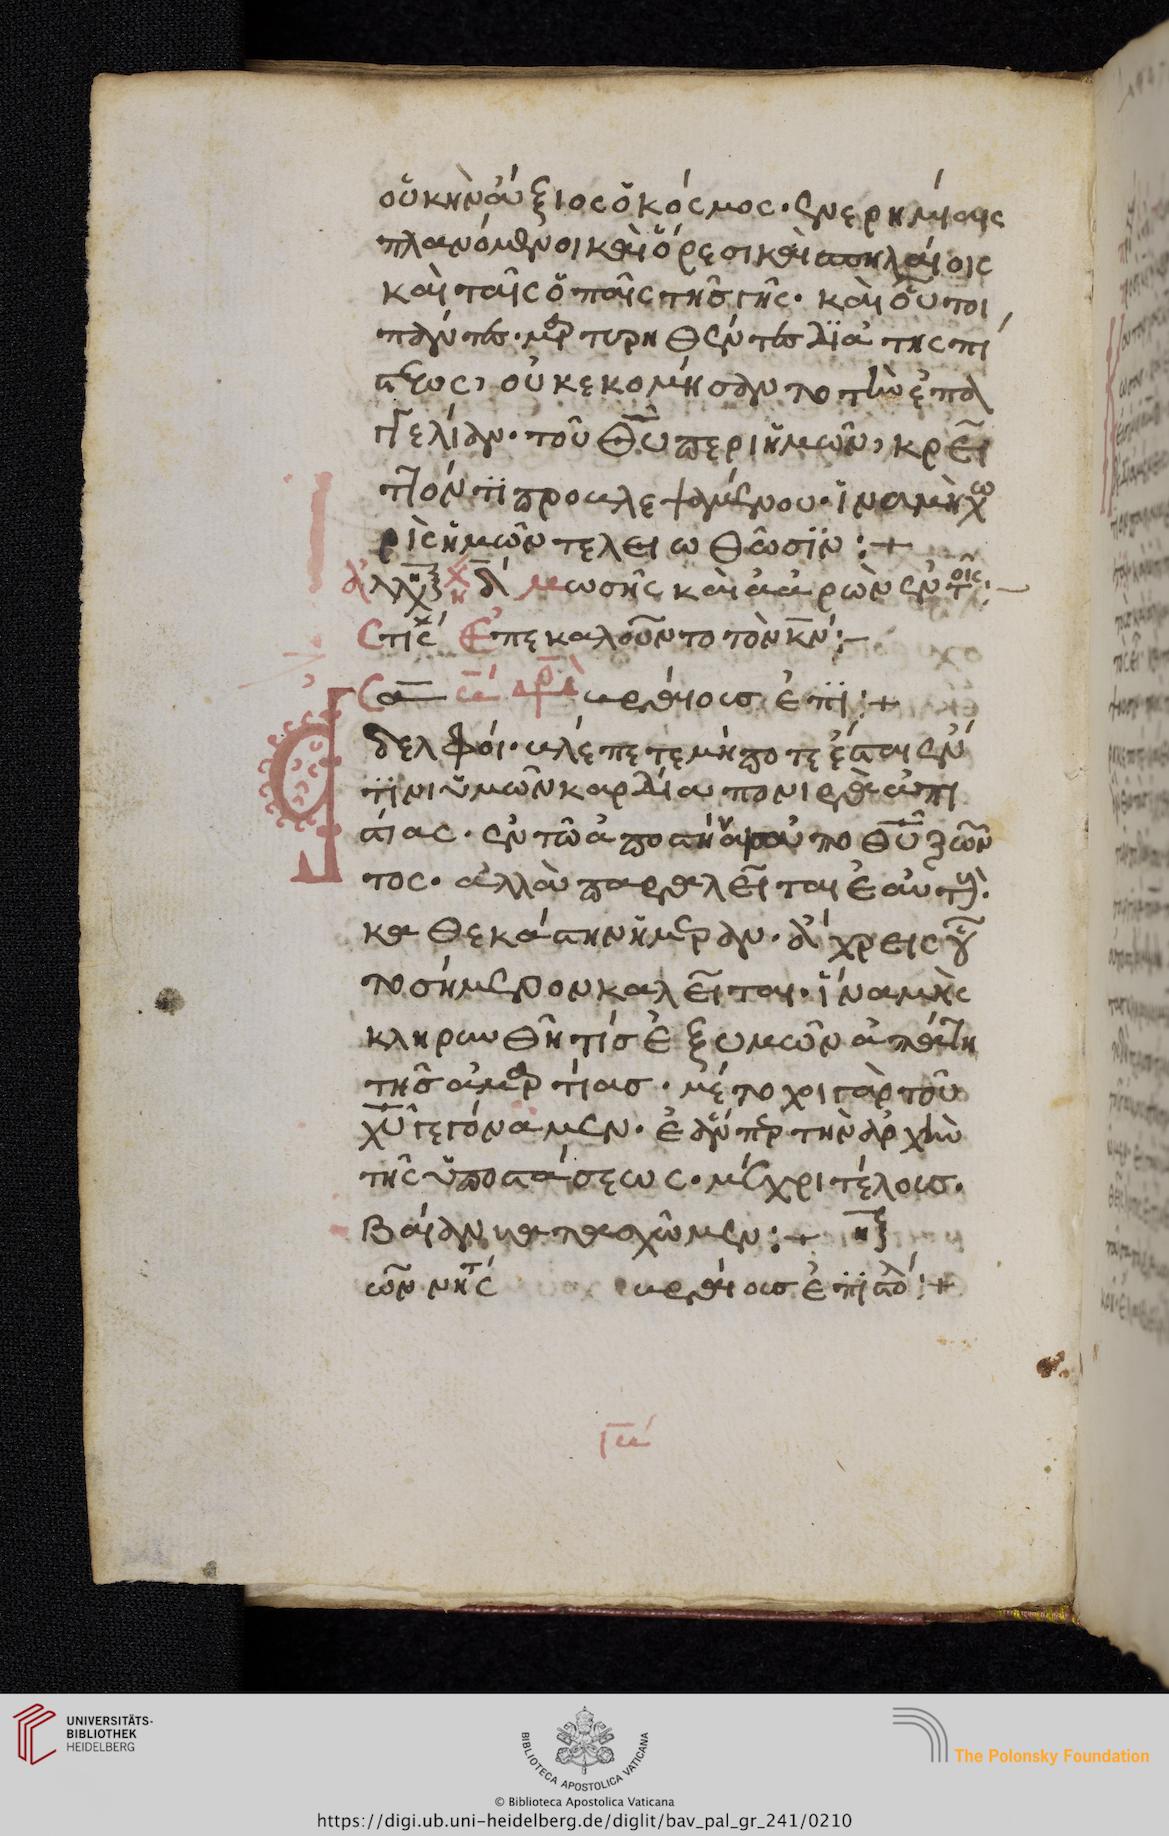 οὐκ ἦν ἄξιος ὁ κόσμος· ἐν ερημίαις
πλανόμενοι καὶ ὄρεσι καὶ σπηλαίοις
καὶ ταῖς ὀπαῖς τῆς γῆς· καὶ οὗτοι
πάντες· μαρτυρηθέντες διὰ της πί
στεως, οὐκ εκομήσαντο τὴν ἐπα
γγελίαν· τοῦ θῡ περι ἡμῶν, κρεῖ
ττόν τι προβλεψαμένου· ἵνα μὴ χω
ρὶς ἡμῶν τελειωθῶσιν :+
μωσῆς καὶ ἀαρὼν ἐν τοῖς :-
Στιχ Επεκαλοῦντο τὸν κν̄ :-
πρὸς ἑβραίους ἐπι :+
δελφοί· βλέπετε μήποτε ἔσται ἐν
τινι ὑμῶν καρδία πονιρὰ ἀπι
στίας· ἐν τῶ ἀποστήναι ἀπὸ θῡ ζῶν
τος· ἀλλὰ παρακαλεῖται ἑαυτοὺς
καθεκάστην ἡμέραν· ἄχρεις οὗ
το σήμερον καλεῖται· ἵνα μὴ σ
κληρυνθῆ τίς ἐξ υμῶν ἀπάτη
τῆς ἁμαρτίας· μέτοχοι γὰρ τοῦ
χῡ γεγόναμεν· ἐάνπερ τὴν ἀρχὴν
τῆς ὑποστάσεως· μέχρι τέλους·
βαίαν κατασχῶμεν :+
UNIVERSITÄTS-
BIBLIOTHEK
HEIDELBERG
BIBLIOTECA APOSTOLICA VATICANA
The Polonsky Foundation
© Biblioteca Apostolica Vaticana
https://digi.ub.uni-heidelberg.de/diglit/bav_pal_gr_241/0210